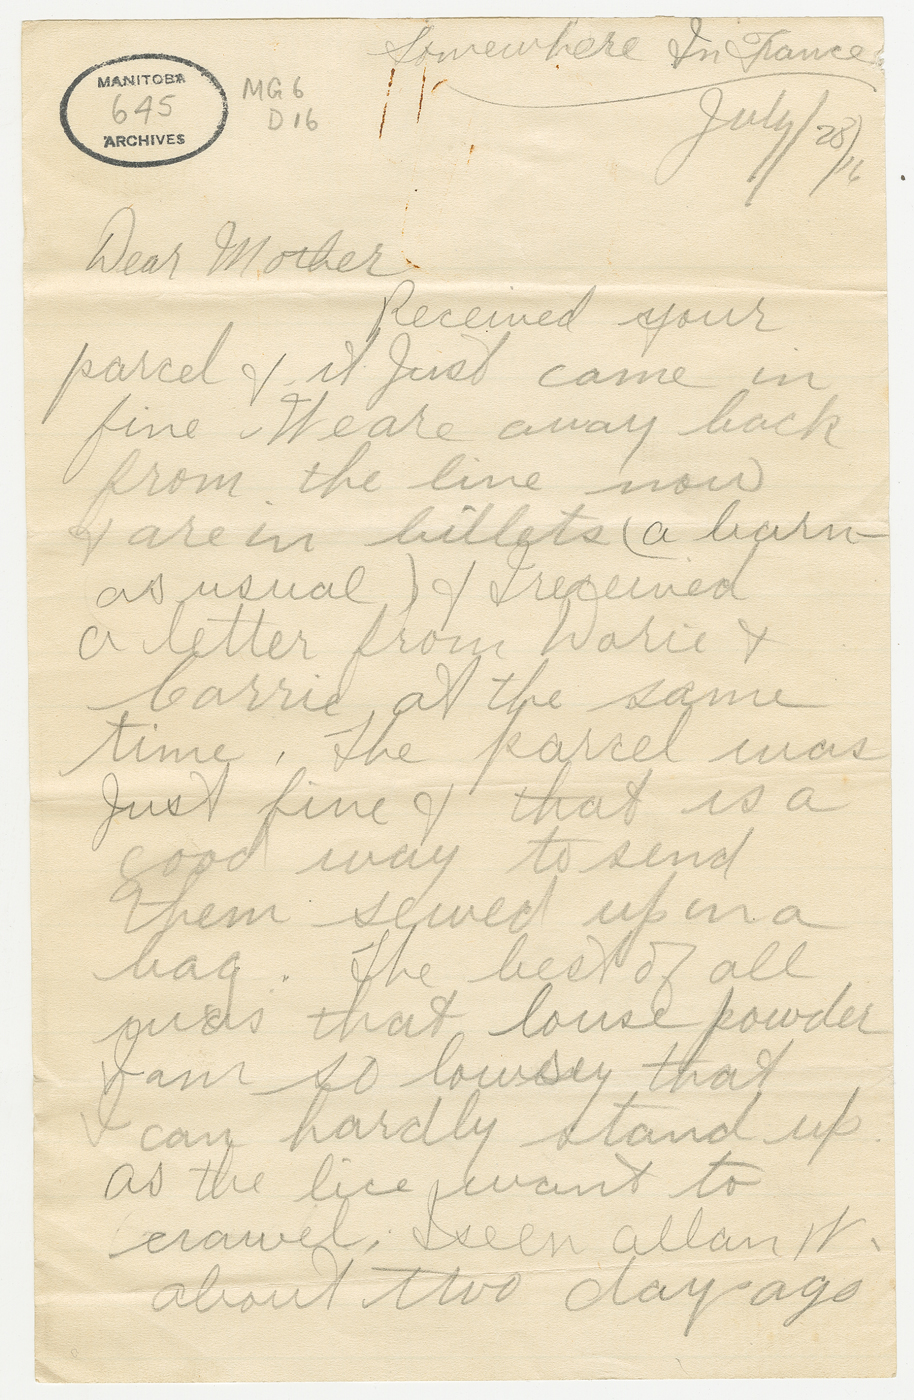 Somewhere In France
July/28/16
MANITOBA
645
ARCHIVES
MG6
D16
Dear Mother
Received your
parcel & it Just came in
fine. We are away back
from the line now
& are in billets (a barn
as usual) & I received
a letter from Dorie &
Carrie at the same
time. The parcel was
Just fine & that is a
good way to send
them sewed up in a
bag. The best of all
was that louse powder
I am so lowsey that
I can hardly stand up
as the lice want to
crawel. I seen allan W.
about two days ago